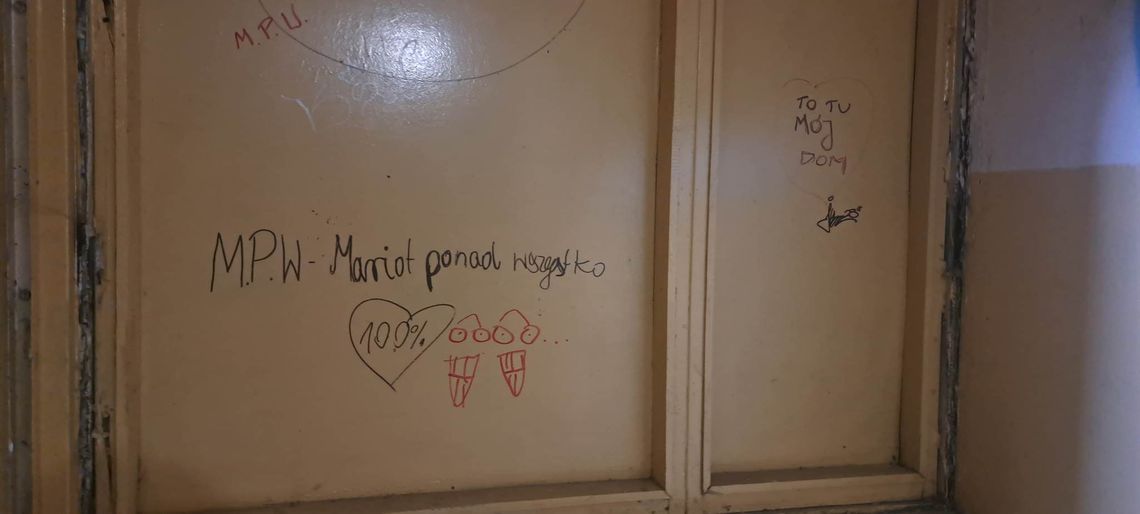 M.P.W.
TO TU
MÓJ
DOM
M.P.W - Marriot ponad wszystko
100%